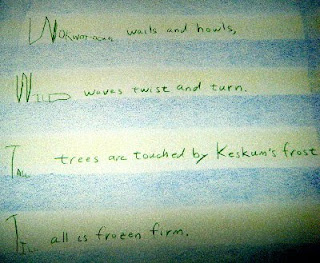 wails and howls,
WILD waves twist and turn.
TALL trees are touched by Keskum's frost
TILL all is frozen firm.